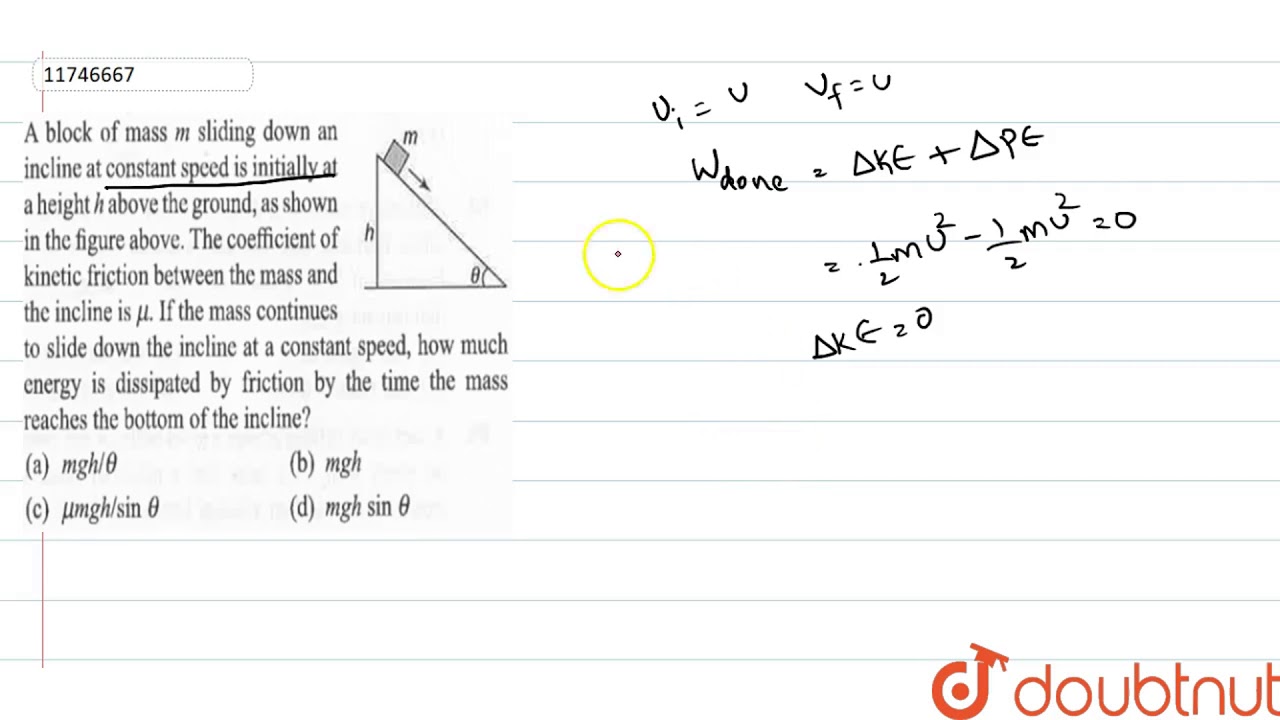 11746667
A block of mass m sliding down an
incline at constant speed is initially at
a height h above the ground, as shown
in the figure above. The coefficient of
kinetic friction between the mass and
the incline is μ. If the mass continues
to slide down the incline at a constant speed, how much
energy is dissipated by friction by the time the mass
reaches the bottom of the incline?
(a) mgh/θ (b) mgh
(c) μmgh/sin θ (d) mgh sin θ
m
h
θ
υi = υ υf = υ
Wdone = ΔKE + ΔPE
= 1/2 mυ² - 1/2 mυ² = 0
ΔKE = 0
doubtnut